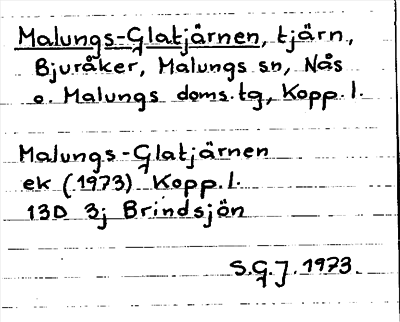 Malungs-Glatjärnen, tjärn,
Bjuråker, Malungs sn, Nås
o. Malungs doms.tg, Kopp.l.
Malungs-Glatjärnen
ek (1973) Kopp.l.
13D 3j Brindsjön
S.G.J. 1973.